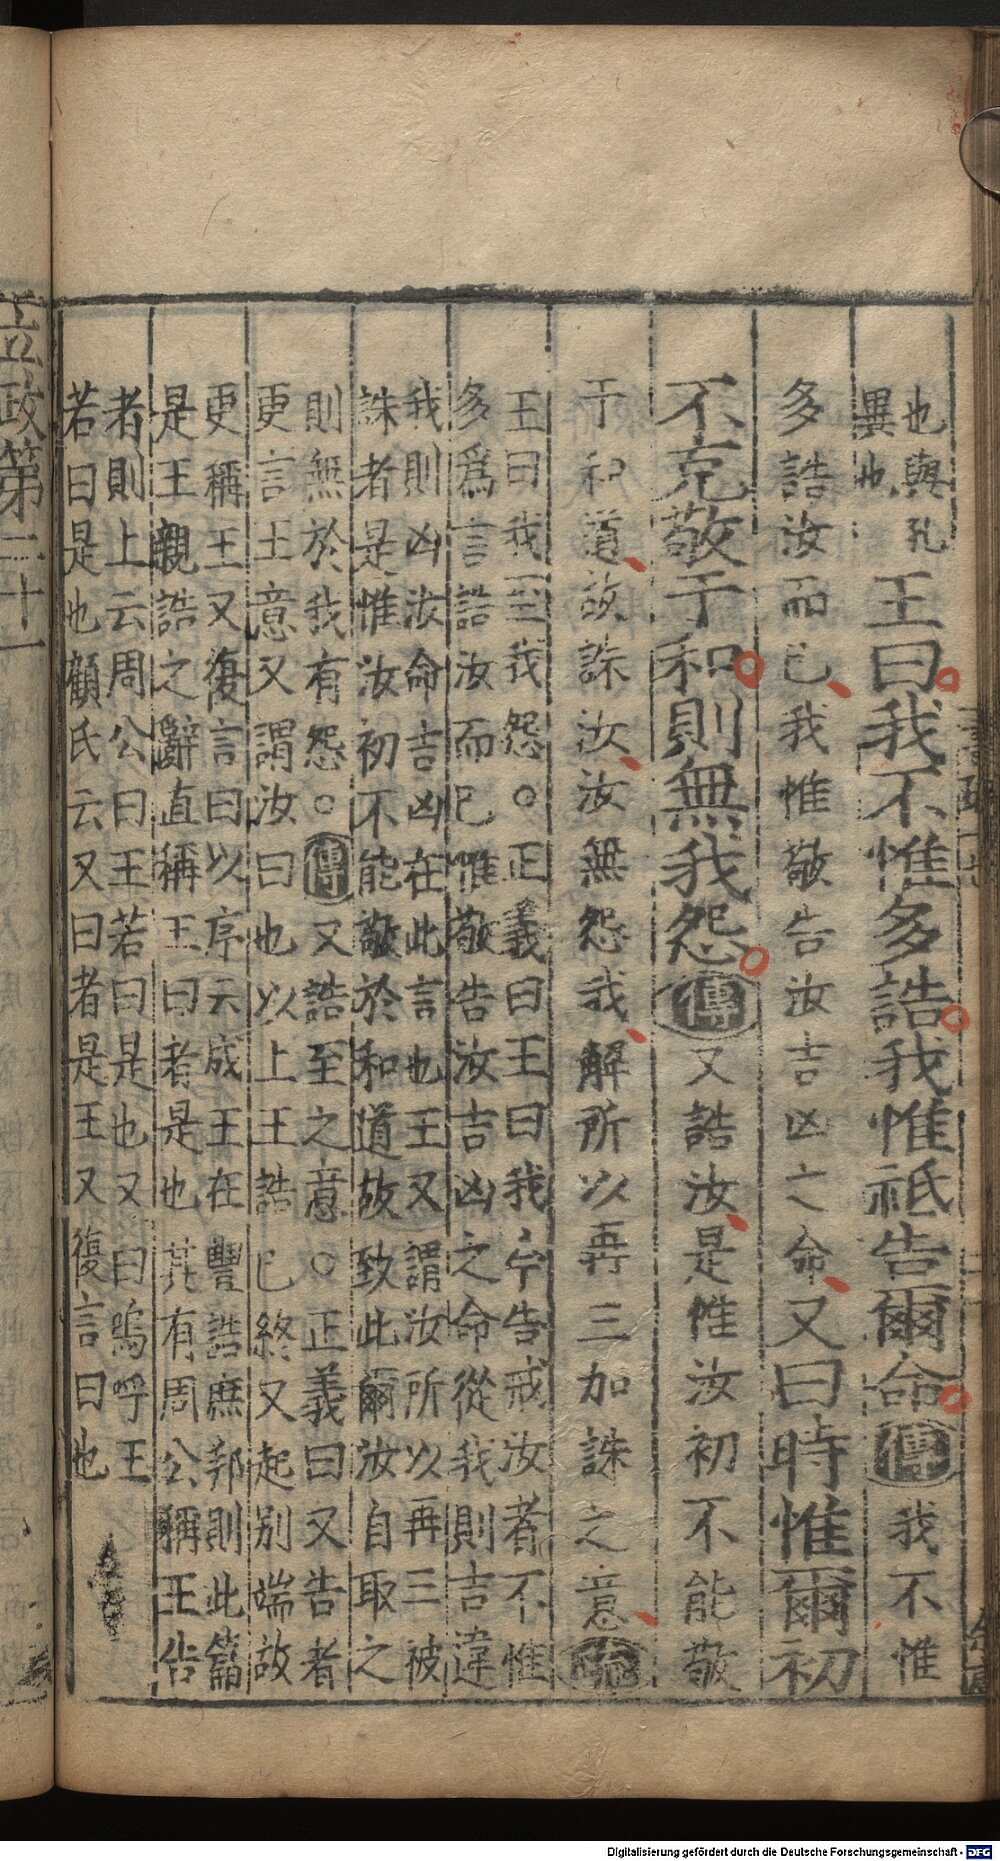 也與孔
異也
王曰我不惟多誥我惟祗告爾命傳我不惟
多誥汝而已我惟敬告汝吉凶之命又曰時惟爾初
不克敬于和則無我怨傳又誥汝是惟汝初不能敬
于和道故誅汝汝無怨我解所以再三加誅之意疏
王曰我至我怨○正義曰王曰我以告戒汝者不惟
多爲言誥汝而已惟敬告汝吉凶之命從我則吉違
我則凶汝命吉凶在此言也王又謂汝所以再三被
誅者是惟汝初不能敬於和道故致此爾汝自取之
則無於我有怨○傳又誥至之意○正義曰又告者
更言王意又謂汝曰也以上王誥已終又起別端故
更稱王又復言曰以序云成王在豐誥庶邦則此篇
是王親誥之辭直稱王曰者是也其有周公稱王告
者則上云周公曰王若曰是也又曰嗚呼王
若曰是也顧氏云又曰者是王又復言曰也
立政第二十一
Digitalisierung gefördert durch die Deutsche Forschungsgemeinschaft - DFG